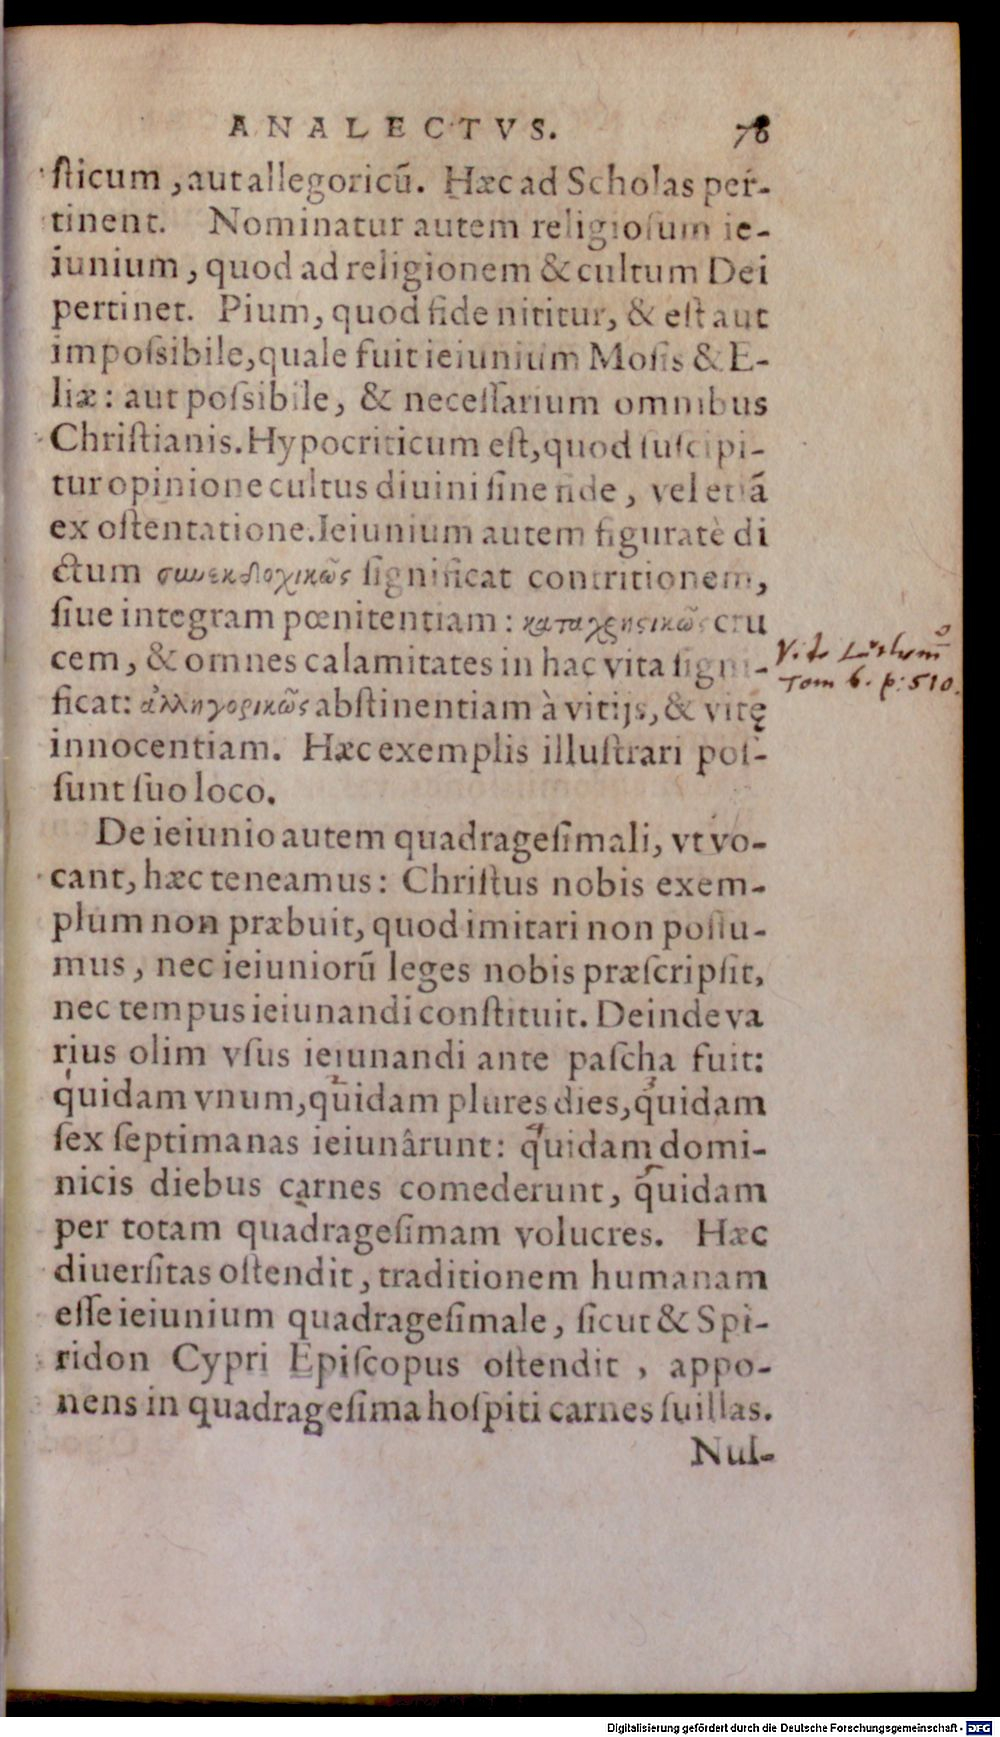 ANALECTVS. 78
ſticum, aut allegoricū. Hæc ad Scholas per-
tinent. Nominatur autem religioſum ie-
iunium, quod ad religionem & cultum Dei
pertinet. Pium, quod fide nititur, & eſt aut
impoſsibile, quale fuit ieiunium Moſis & E-
liæ: aut poſsibile, & neceſſarium omnibus
Chriſtianis. Hypocriticum eſt, quod ſuſcipi-
tur opinione cultus diuini ſine fide, vel etiā
ex oſtentatione. Ieiunium autem figuratè di
ctum συνεκδοχικῶς ſignificat contritionem,
ſiue integram pœnitentiam: καταχρηστικῶς cru
cem, & omnes calamitates in hac vita ſigni-
ficat: ἀλληγορικῶς abſtinentiam à vitijs, & vitę
innocentiam. Hæc exemplis illuſtrari poſ-
ſunt ſuo loco.
De ieiunio autem quadrageſimali, vt vo-
cant, hæc teneamus: Chriſtus nobis exem-
plum non præbuit, quod imitari non poſſu-
mus, nec ieiuniorū leges nobis præſcripſit,
nec tempus ieiunandi conſtituit. Deinde va
rius olim vſus ieiunandi ante paſcha fuit:
quidam vnum, quidam plures dies, quidam
ſex ſeptimanas ieiunârunt: quidam domi-
nicis diebus carnes comederunt, quidam
per totam quadrageſimam volucres. Hæc
diuerſitas oſtendit, traditionem humanam
eſſe ieiunium quadrageſimale, ſicut & Spi-
ridon Cypri Epiſcopus oſtendit, appo-
nens in quadrageſima hoſpiti carnes ſuillas.
Nul-
Tom 6. p: 510.
Digitalisierung gefördert durch die Deutsche Forschungsgemeinschaft - DFG